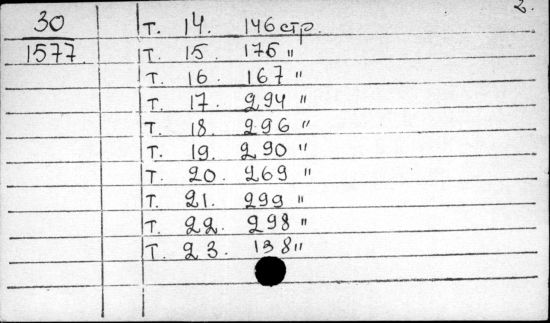 2.
30 Т. 14. 146 стр.
1577. Т. 15. 175 "
Т. 16. 167 "
Т. 17. 294 "
Т. 18. 296 "
Т. 19. 290 "
Т. 20. 269 "
Т. 21. 299 "
Т. 22. 298 "
Т. 23. 138 "